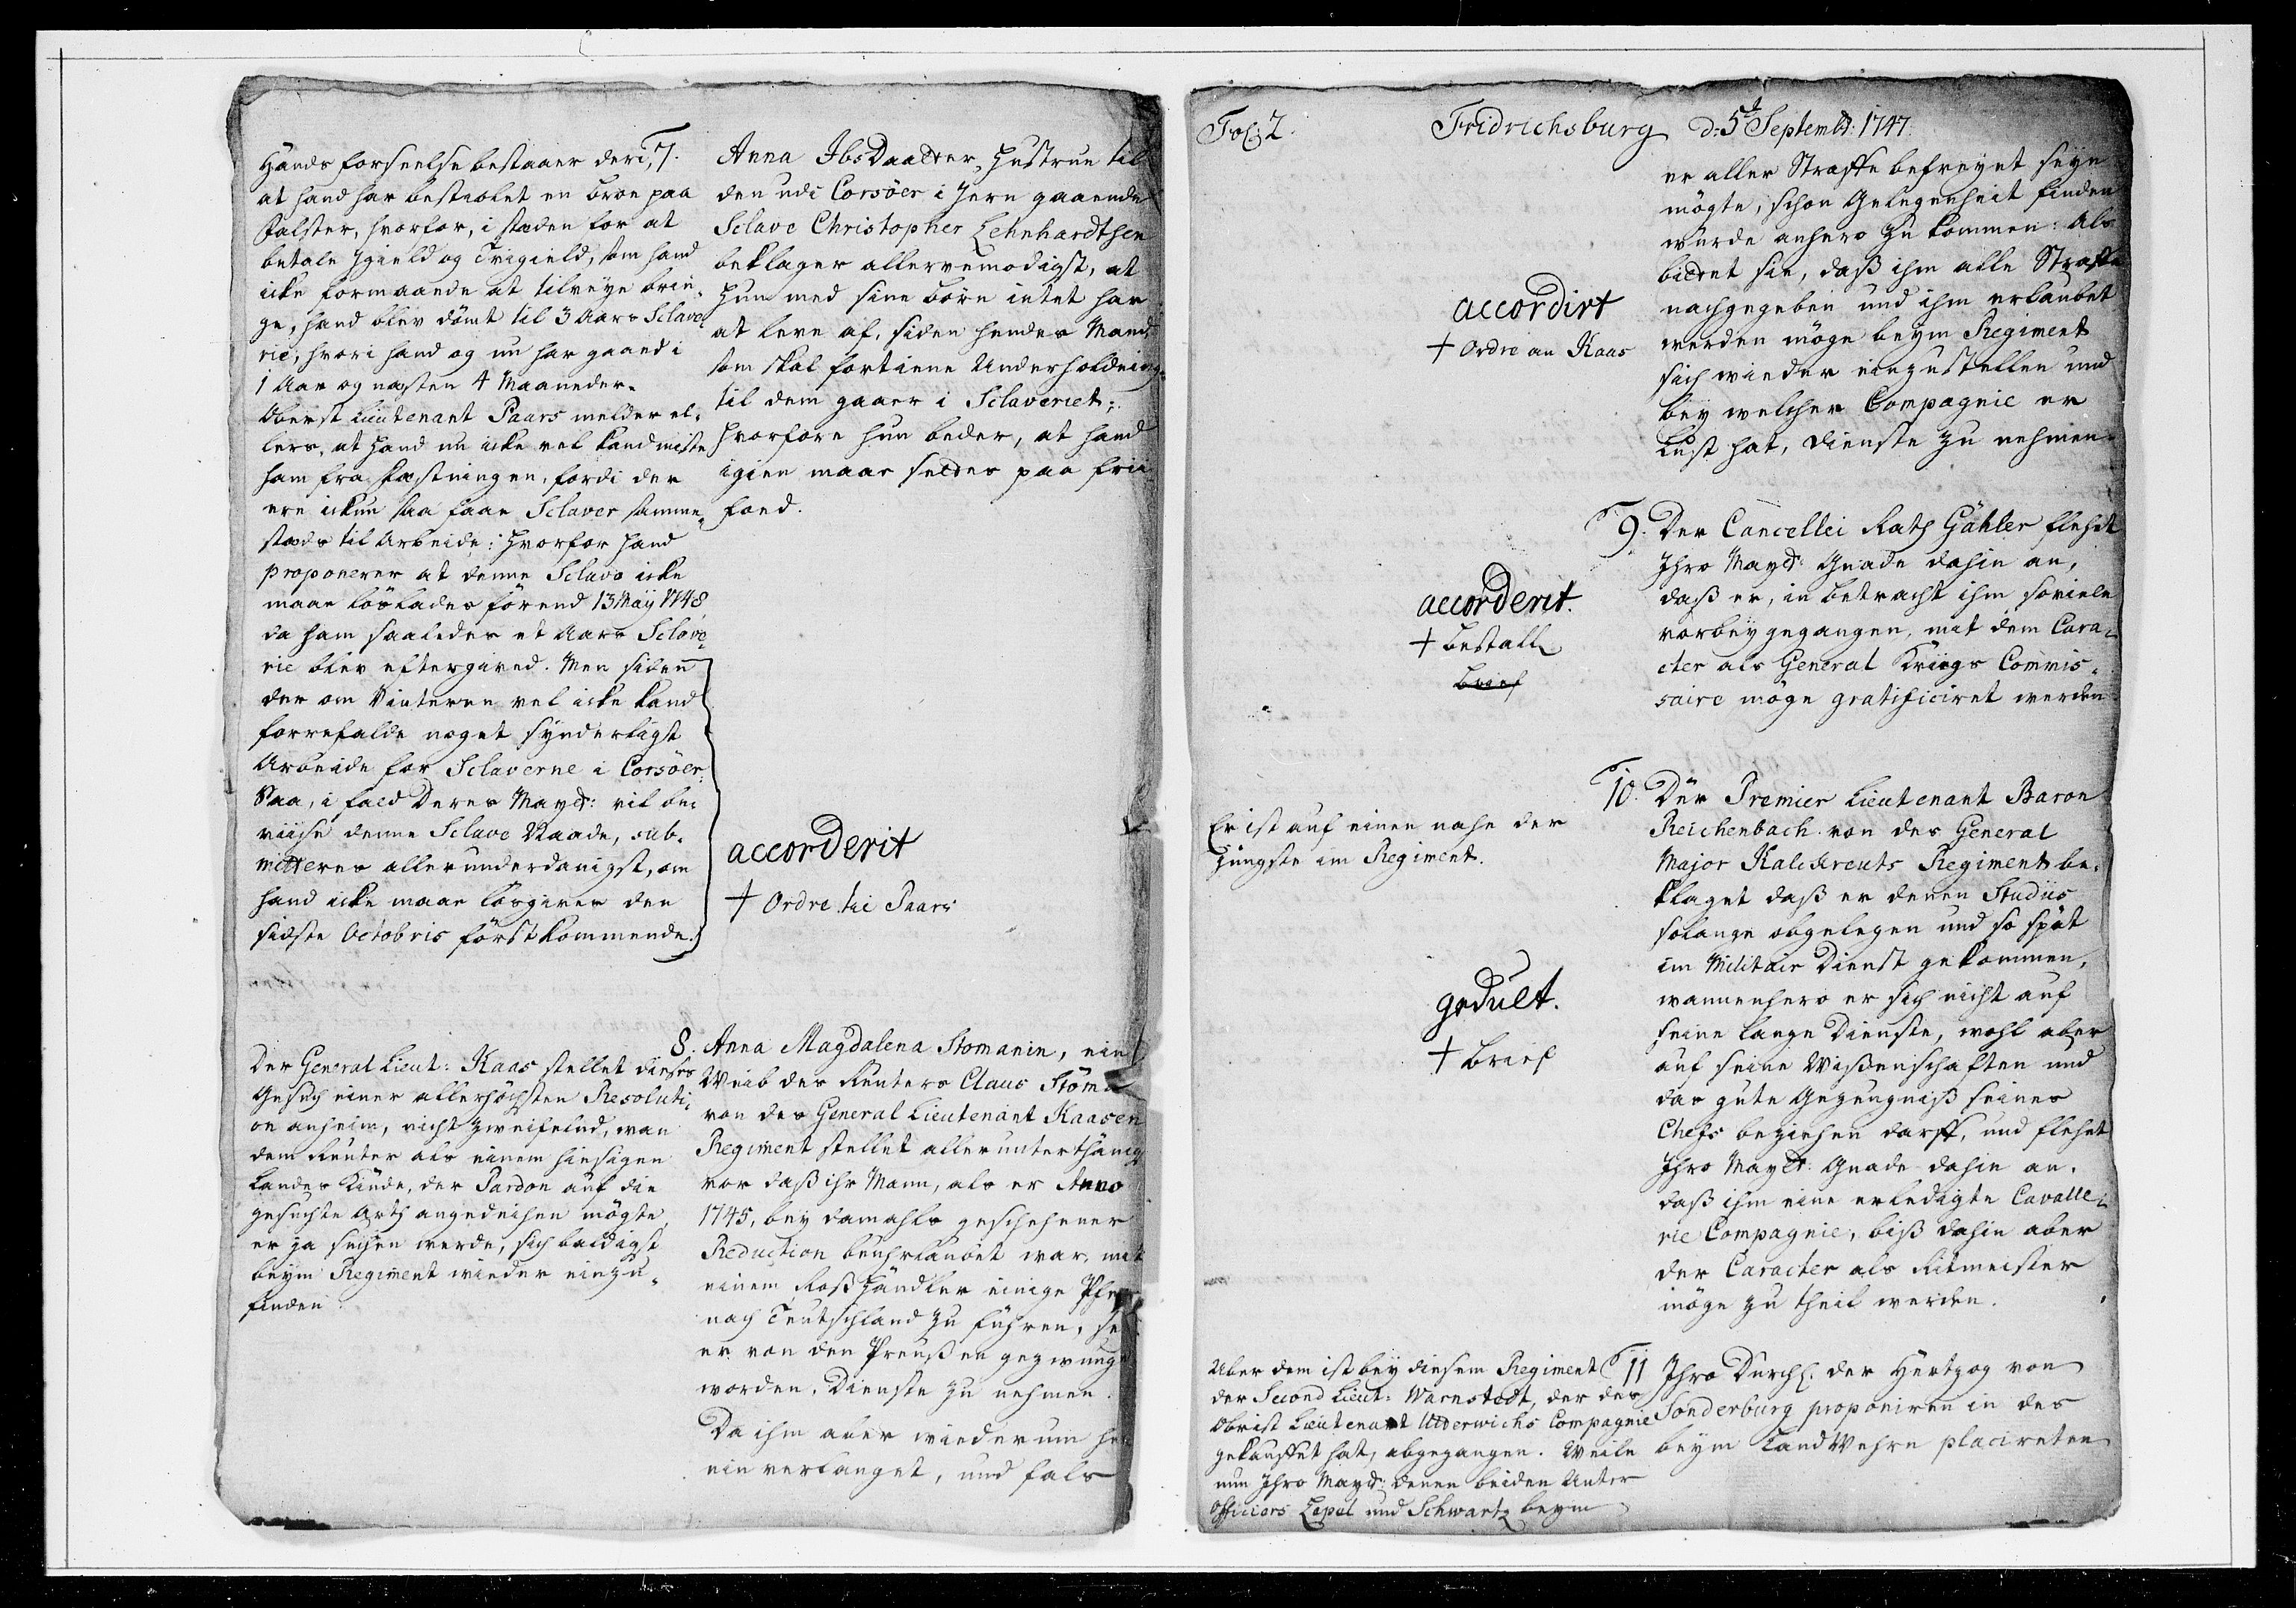 Hands forseelse bestaaer deri,
at hand har bestiaalet en broe paa
Falster, hvorfor, i stæden for at
betale Igield og Tvigield, som hand
icke formaaede at tilveye brin-
ge, hand blev dömt til 3 Aars Sclave-
rie, hvori hand og nu har gaaed i
1 Aar og næsten 4 Maaneder.
Oberst Lieutenant Paars melder el-
lers, at hand nu icke vel kand miste
ham fra fæstningen, fordi der
ere ickun saa faae Sclaver samme-
stæds til Arbeide: hvorfor hand
proponerer at denne Sclave icke
maae löslades förend 13 Maij 1748
da ham saaledes et Aars Sclave-
rie blev eftergived. Men siden
der om Vinteren vel icke kand
forrefalde noget synderligt
Arbeide for Sclaverne i Corsöer
Saa, i fald Deres Mayt: vil be-
viise denne Sclave Naade, sub-
mitteres allerunderdanigst, om
hand icke maae lösgives den
sidste Octobris förstkommende.
7.
Anna Ibs Daatter, Hustrue til
den udi Corsöer i Jern gaaende
Sclave Christopher Lehnhardtsen
beklager allervemodigst, at
hun med sine börn intet har
at leve af, siden hendes Mand
som skal fortiene Underholdning
til dem gaaer i Sclaveriet;
hvorfore hun beder, at hand
igien maae settes paa frii
foed.
accorderit
+ Ordre til Paars
Der General Lieut: Kaas stellet dieses
Gesuch einer allerhöchsten Resoluti-
on anheim, nicht zweifelnd, wan
dem Reuter als einem hiesigen
Landes Kinde, der Pardon auf die
gesuchte Arth angedeihen mögte,
er ja suchen werde, sich baldigst
beym Regiment wieder einzu-
finden.
8. Anna Magdalena Stomanin, ein
Weib des Reuters Claus Stöma
von des General Lieutenant Kaasen
Regiment stellet allerunterthänig
vor daß ihr Mann, als er Anno
1745, bey damahls geschehener
Reduction beuhrlaubet war, mit
einem Roßhändler einige Pfer
nach Teutschland zu führen, se
er von den Preußen gezwunge
worden, Dienste zu nehmen.
Da ihm aber wiederum her
ein verlanget, und fals
Fol: 2.
Fridrichsburg d: 5t Septembr: 1747.
er aller Straffe befreyet seyn
mögte, schon Gelegenheit finden
würde anhero zu kommen: Als
bittet sie, daß ihm alle Straffe
nachgegeben und ihm erlaubet
werden möge beym Regiment
sich wieder einzustellen und
bey welcher Compagnie er
Lust hat, Dienste zu nehmen.
accordirt
+ Ordre an Kaas
9. Der Cancellei Rath Gähler flehet
Ihro Mayt: Gnade dahin an,
daß er, in betracht ihm soviele
vorbey gegangen, mit dem Cara-
cter als General Kriegs Commis-
saire möge gratificiret werden.
accorderit.
+ bestall
brief
10. Der Premier Lieutenant Baron
Reichenbach von des General
Major Kalckreuts Regiment be-
klaget daß er denen Studiis
solange obgelegen und so spät
im Militair Dienst gekommen,
wannenhero er sich nicht auf
seine lange Dienste, wohl aber
auf seine Wißenschaften und
das gute Gezeugniß seines
Chefs beziehen darff, und flehet
Ihro Mayt: Gnade dahin an,
daß ihm eine erledigte Cavalle-
rie Compagnie, biß dahin aber
der Caracter als Ritmeister
möge zu theil werden.
Er ist auf einen nahe der
jüngste im Regiment.
gedult.
+ brief
Uber dem ist bey diesem Regiment
der Second Lieut: Warnstedt, der des
Obrist Lieutenant Utterwichs Compagnie
gekauffet hat, abgegangen. Weile
nun Ihro Mayt: denen beiden Unter
officiers Lepel und Schwartz beym
11 Ihro Durchl. der Hertzog von
Sonderburg proponiren in des
beym Land Wehrn placireten